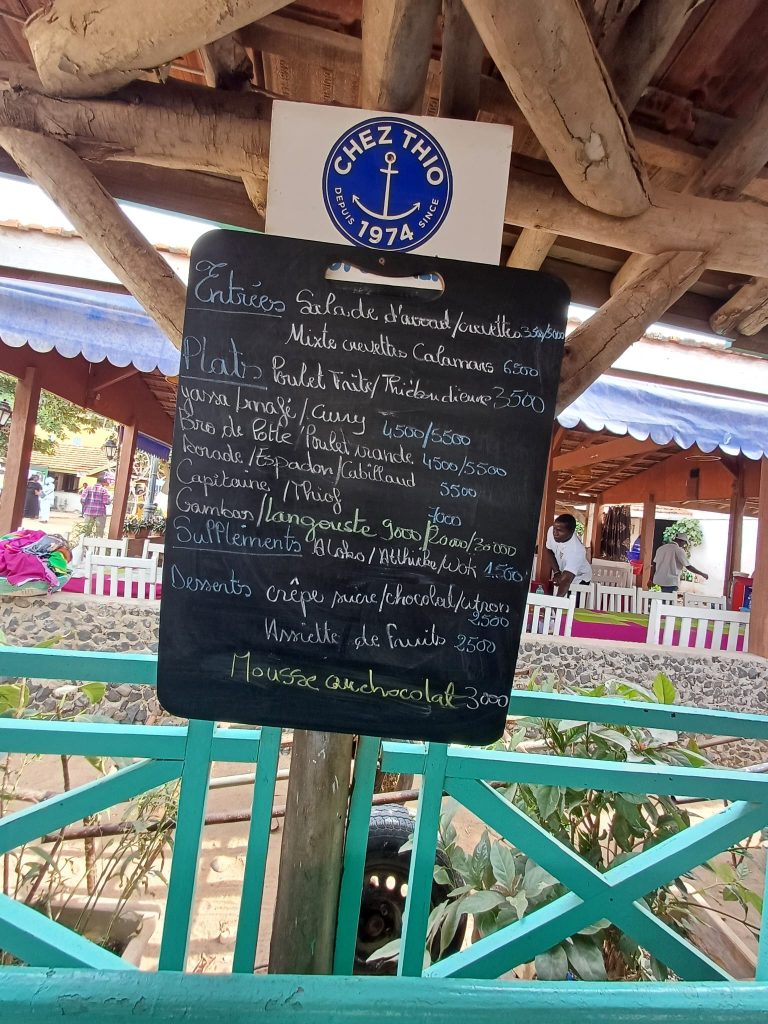 CHEZ THIO
DEPUIS SINCE
1974
Entrées Salade d'avocat/crevettes 3500/5000
Mixte crevettes Calamars 6500
Plats Poulet Frites/Thiéboudieune 3500
yassa/mafé/Curry 4500/5500
Bro de Lotte/Poulet viande 4500/5500
Dorade/Espadon/Cabillaud 5500
Capitaine/Thiof 7000
Gambas/Langouste 9000/20000/30000
Suppléments Aloko/Atthieke/Wok 1.500
Desserts crêpe sucre/chocolat/citron
2500
Assiette de Fruits 2500
Mousse au chocolat 3000